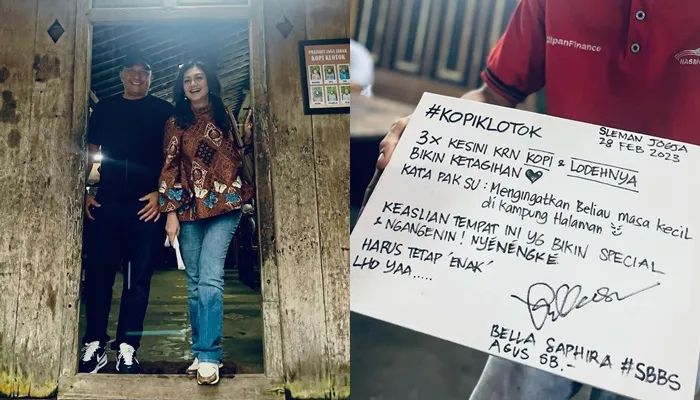 PRAMUSTI JAGA SANAK
KOPI KLOTOK
SipanFinance
#KOPIKLOTOK
SLEMAN JOGJA
28 FEB 2023
3x KESINI KRN KOPI & LODEHNYA
BIKIN KETAGIHAN
KATA PAK SU : Mengingatkan Beliau masa kecil
di Kampung Halaman
KEASLIAN TEMPAT INI YG BIKIN SPECIAL
& NGANGENIN! NYENENGKE
HARUS TETAP 'ENAK'
LHO YAA.....
BELLA SAPHIRA #SBBS
AGUS SB.-